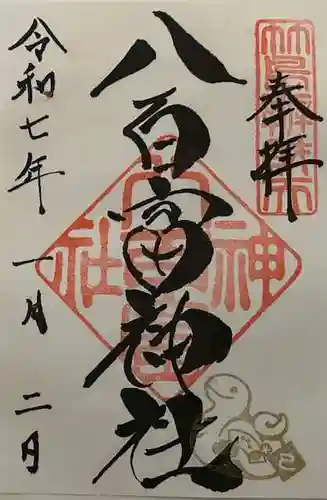 奉拝
八百富神社
令和七年 一月 二日
八百富神社
巳